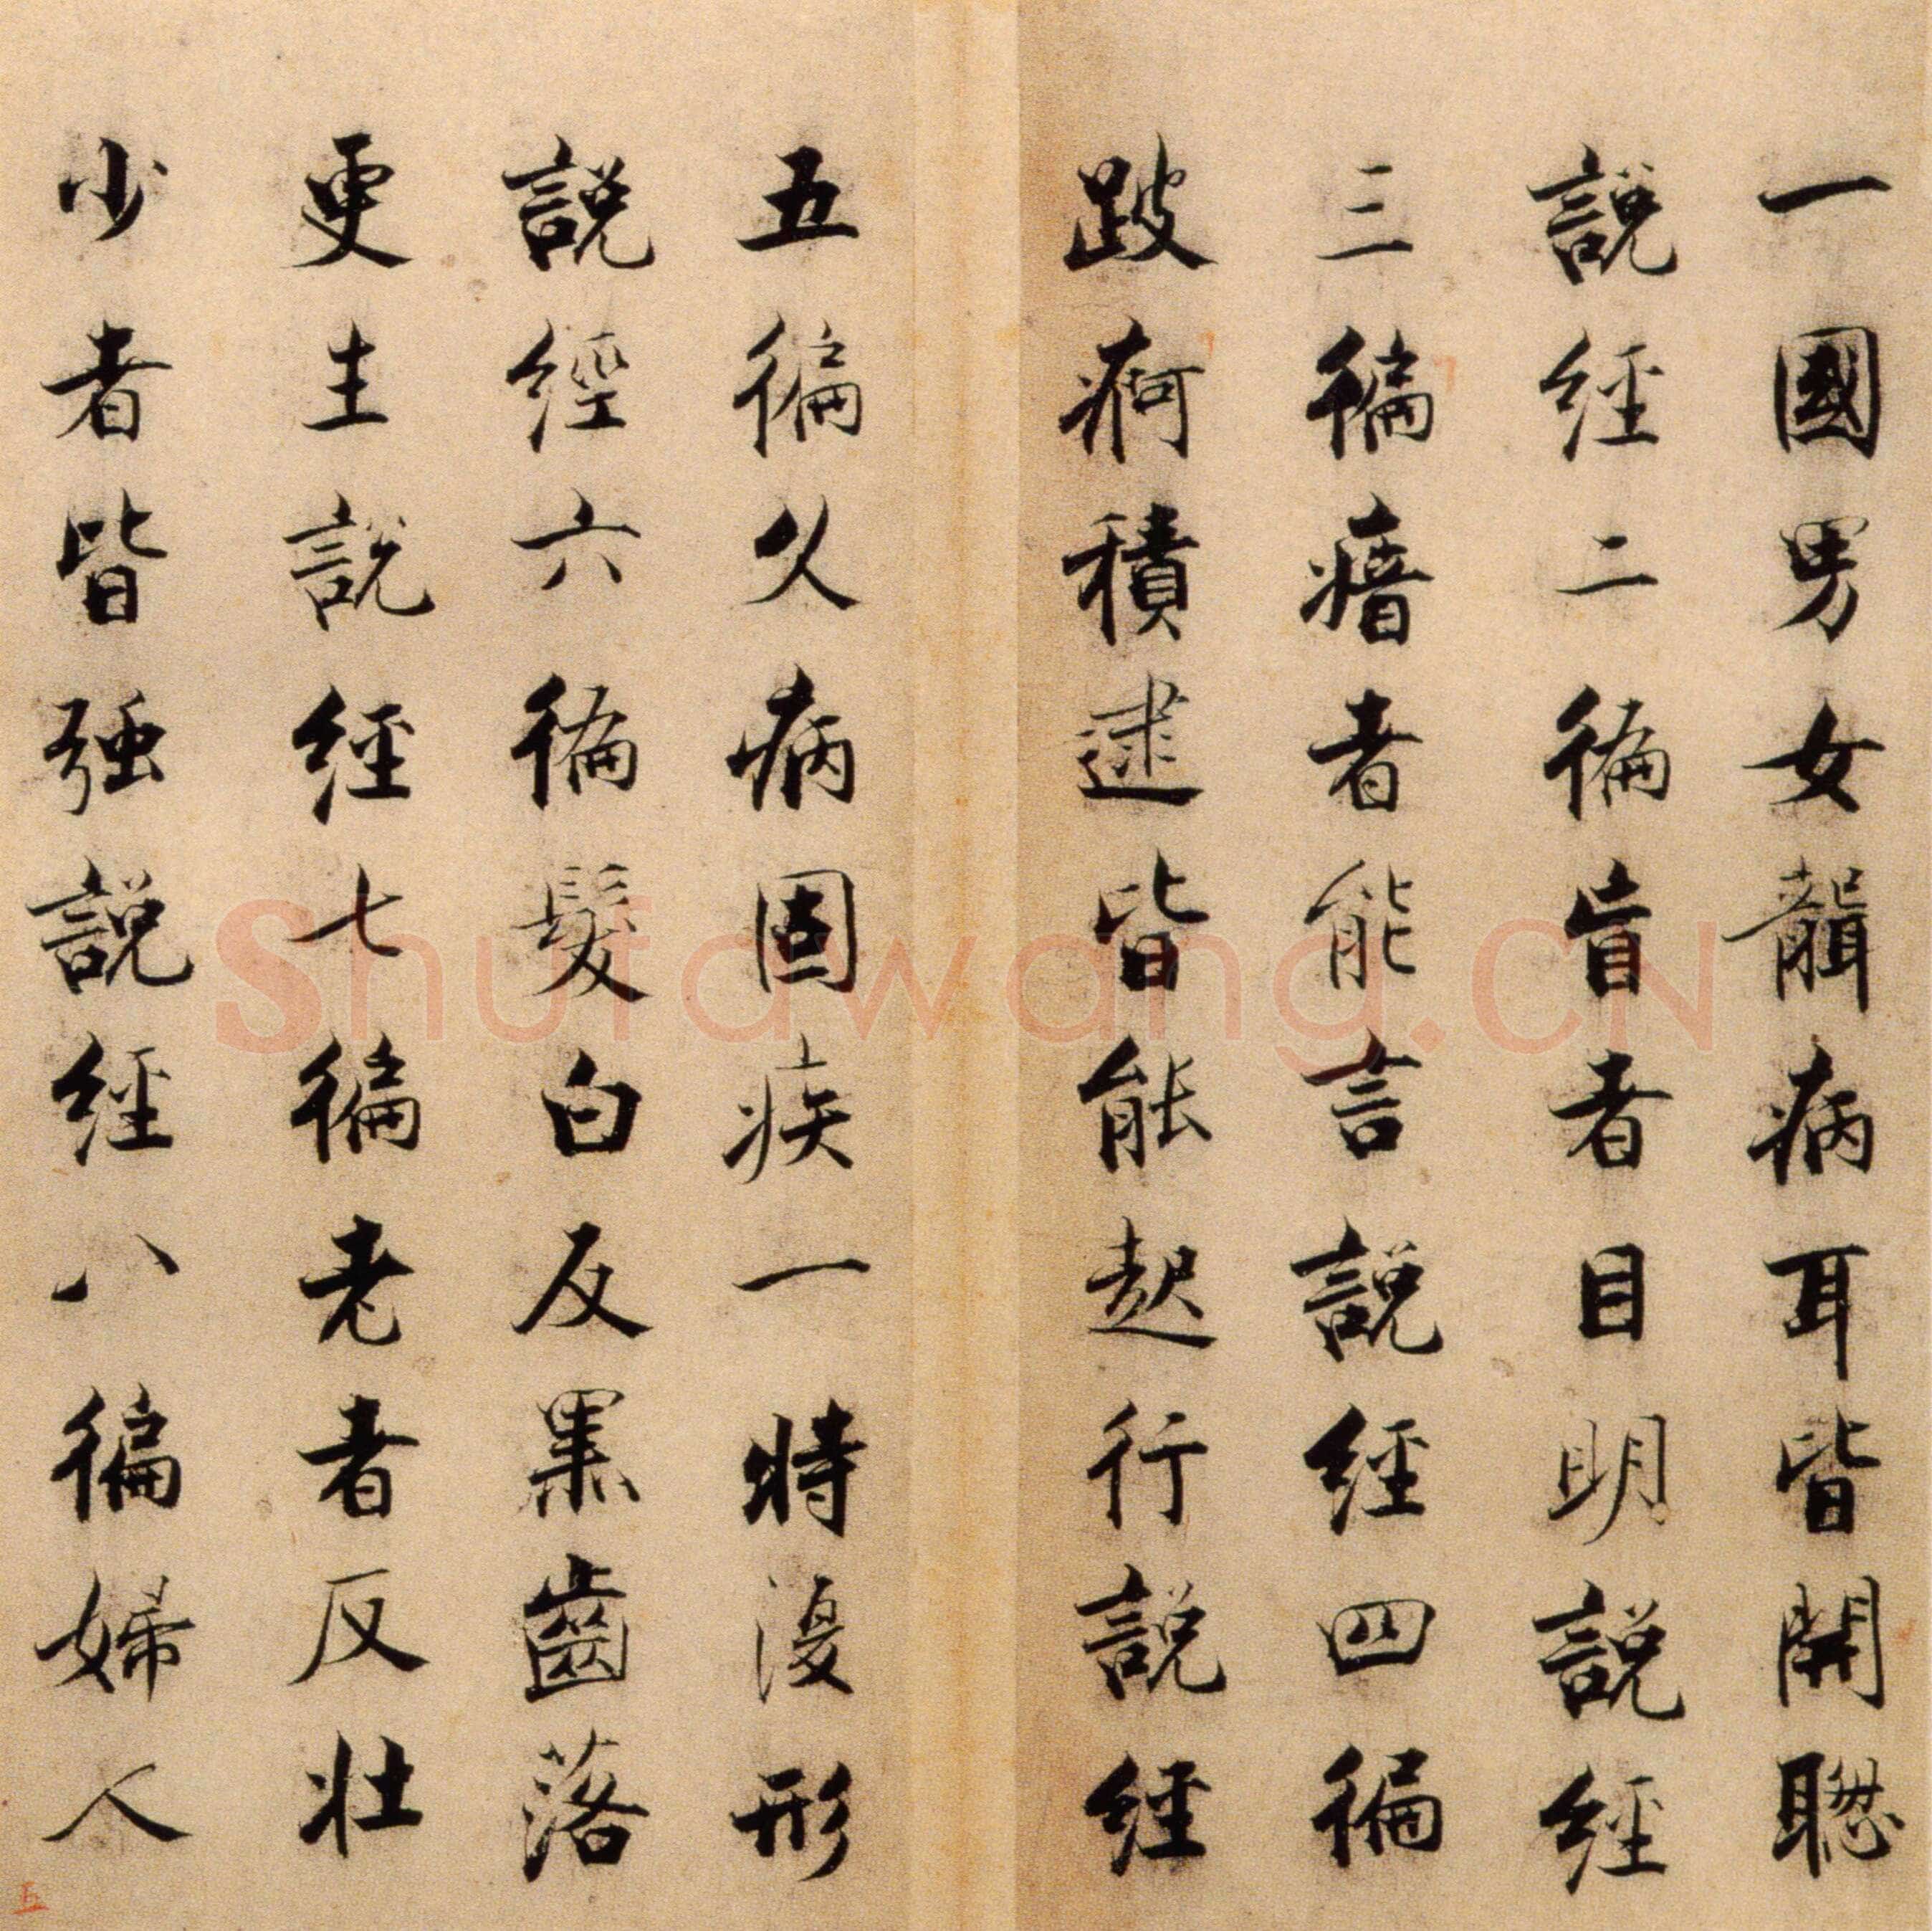 一國男女聾病耳皆開聰
說經二徧盲者目明說經
三徧瘖者能言說經四徧
跛痾積逮皆能起行說經
五徧久病固疾一時復形
說經六徧髮白反黑齒落
更生說經七徧老者反壯
少者皆强說經八徧婦人
五
Shufawang.CN